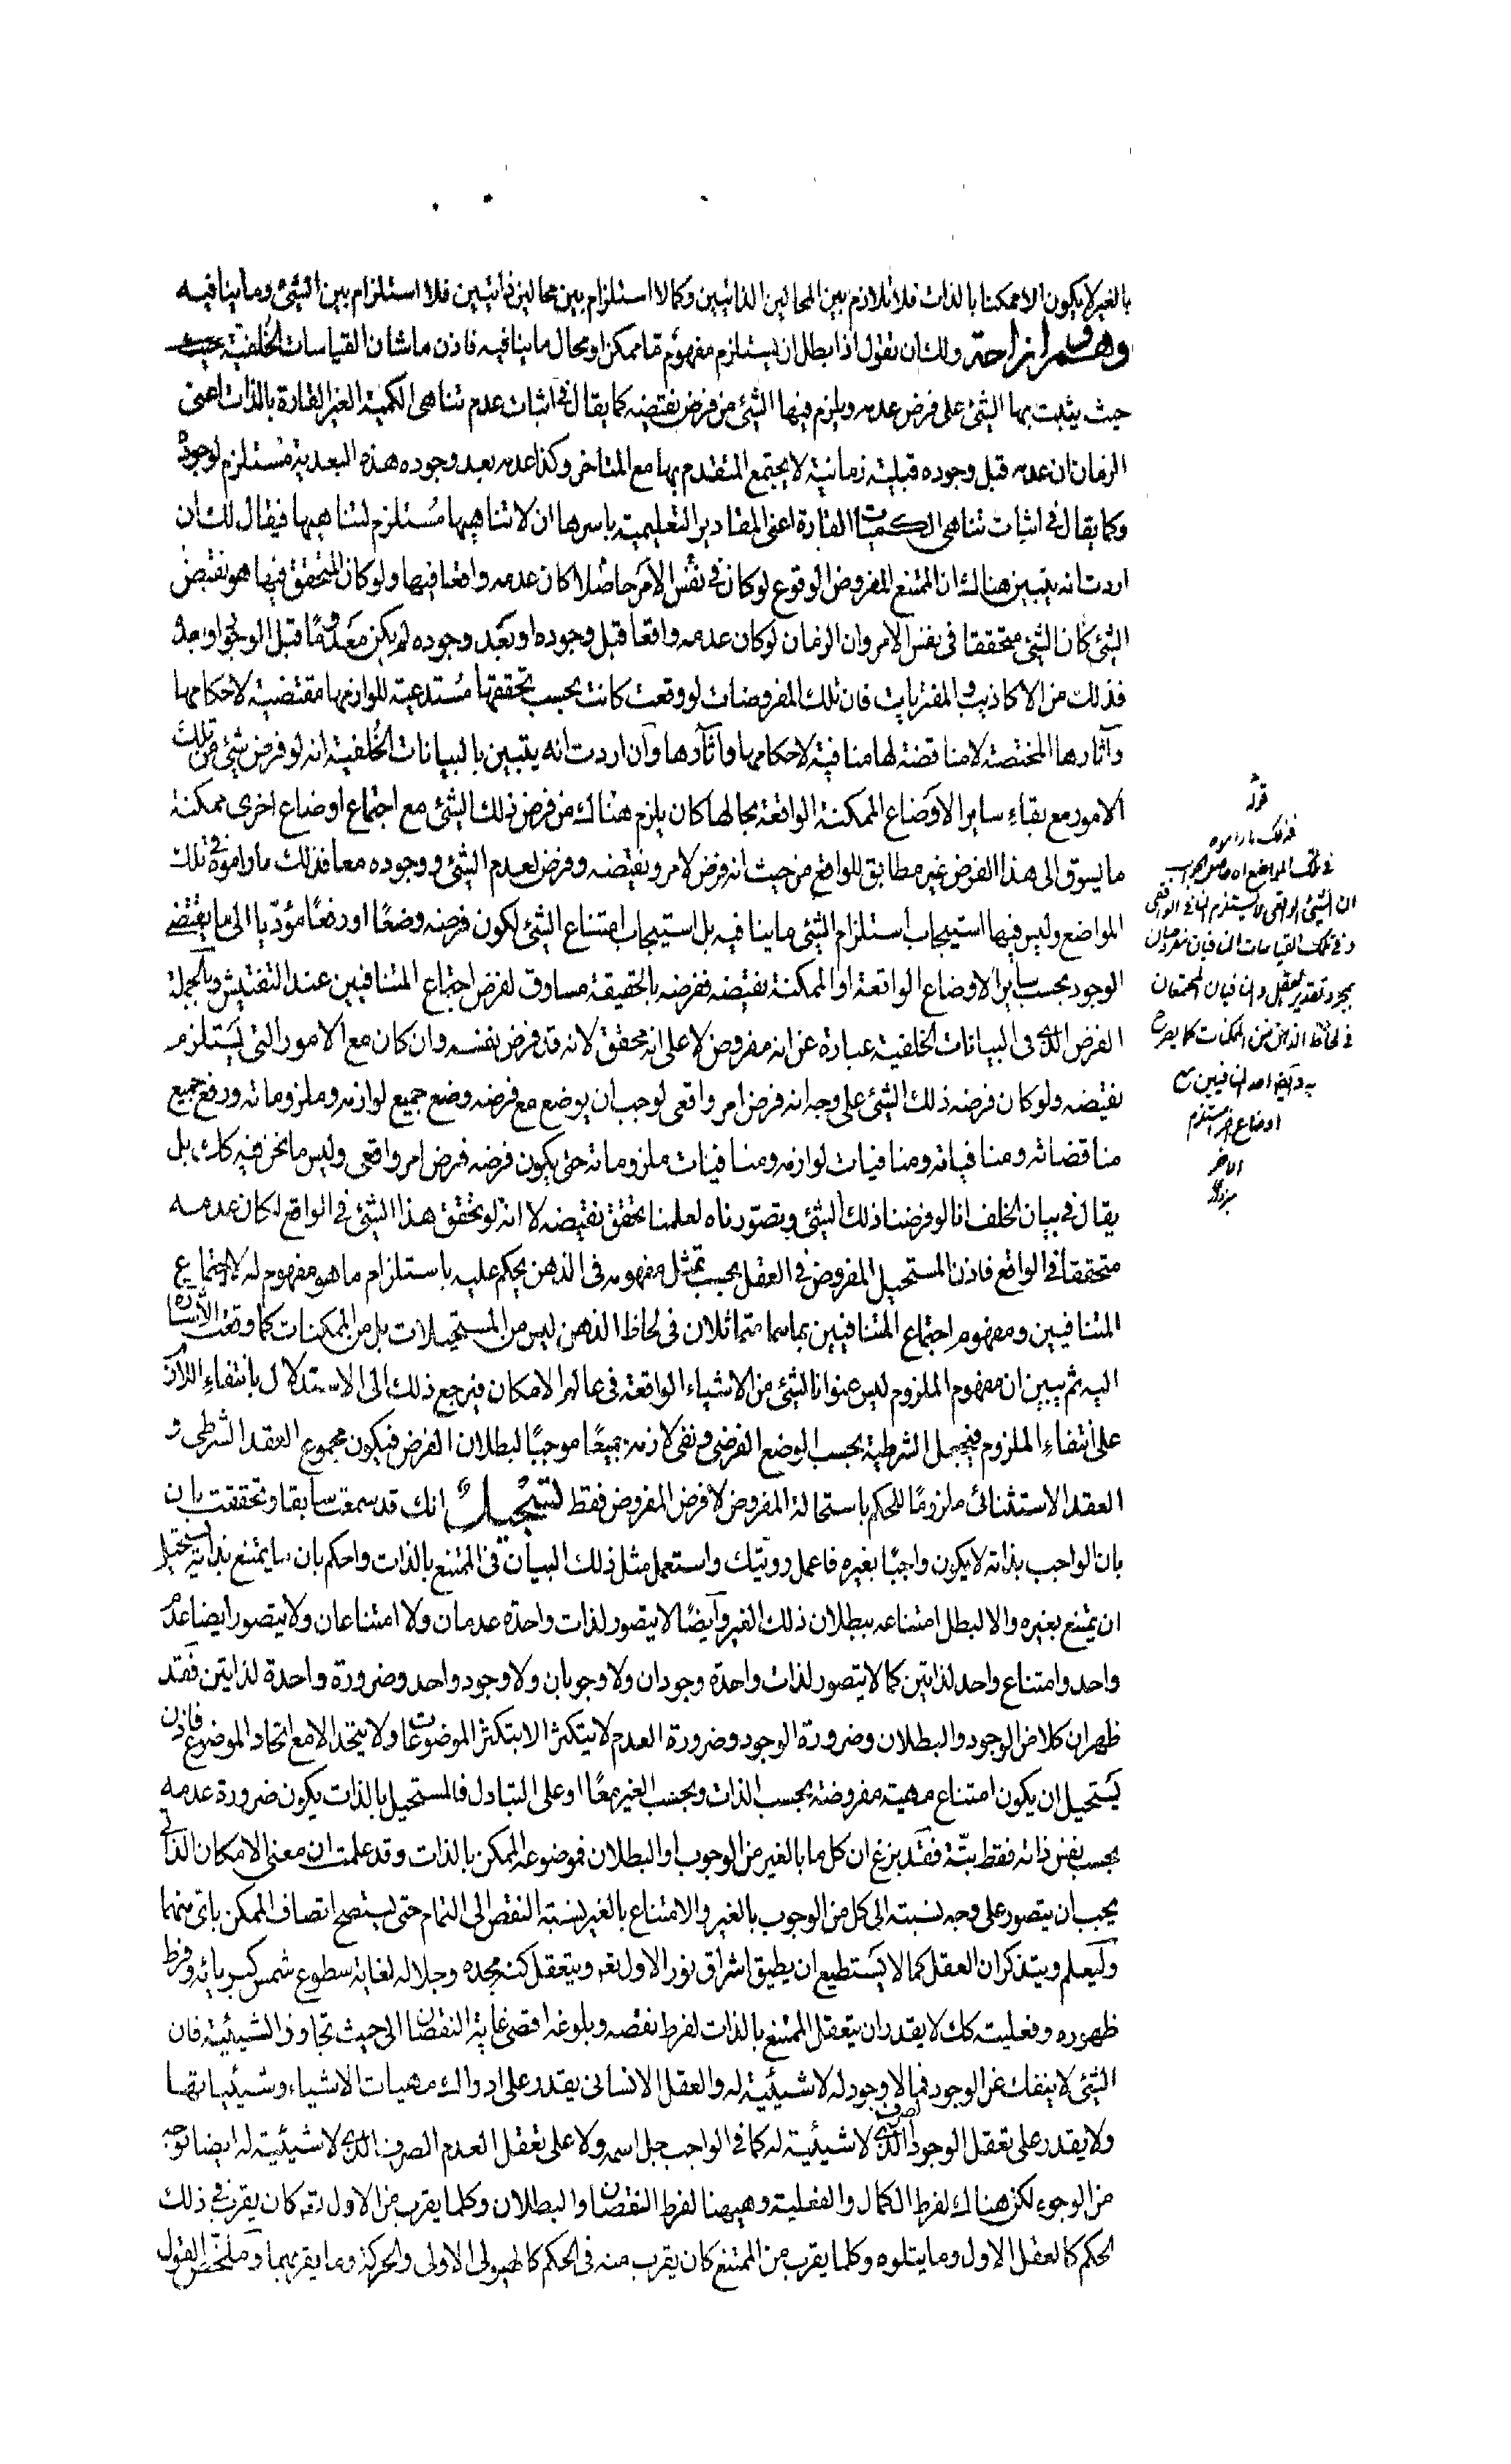 بالغير لا يكون الا ممكنا بالذات فلا تلازم بين المحالين الذاتيين وكما لا استلزام بين محالين ذاتيين فلا استلزام بين الشئ وما ينافيه
وهم وازاحة ولك ان تقول اذا بطل ان يستلزم مفهوم ما ممكن او محال ما ينافيه فاذن ما شان القياسات الخلفية
حيث يثبت بها الشئ على فرض عدمه ويلزم فيها الشئ من فرض نقيضه كما يقال فى اثبات عدم تناهى الكمية الغير القارة بالذات اعنى
الزمان ان عدمه قبل وجوده قبلية زمانية لا يجتمع المتقدم بها مع المتاخر وكذا عدمه بعد وجوده هذه البعدية مستلزم لوجوده
وكما يقال فى اثبات تناهى الكميات القارة اعنى المقادير التعليمية باسرها ان لا تناهيها مستلزم لتناهيها فيقال لك ان
اردت انه يتبين هناك ان الممتنع المفروض الوقوع لو كان فى نفس الامر حاصلا كان عدمه واقعا فيها ولو كان المتحقق فيها هو نقيض
الشئ كان الشئ متحققا فى نفس الامر وان الزمان لو كان عدمه واقعا قبل وجوده او بعد وجوده لم يكن معدوما قبل الوجود او بعده
فذلك من الاكاذيب والمفتريات فان تلك المفروضات لو وقعت كانت بحسب تحققها مستدعية للوازمها مقتضية لاحكامها
وآثارها المختصة لا مناقضة لها منافية لاحكامها وآثارها وان اردت انه يتبين بالبيانات الخلفية انه لو فرض شئ من تلك
الامور مع بقاء ساير الاوضاع الممكنة الواقعة بحالها كان يلزم هناك من فرض ذلك الشئ مع اجتماع اوضاع اخرى ممكنة
ما يسوق الى هذا الفرض غير مطابق للواقع من حيث انه فرض لامر ونقيضه وفرض لعدم الشئ ووجوده معا فذلك ما راموه فى تلك
المواضع وليس فيها استيجاب استلزام الشئ ما ينافيه بل استيجاب امتناع الشئ لكون فرضه وضعا او رفعا مؤديا الى ما يقتضى
الوجود بحسب ساير الاوضاع الواقعة او الممكنة نقيضه ففرضه بالحقيقة مساوق لفرض اجتماع المتنافيين عند التفتيش وبالجملة
الفرض الذى فى البيانات الخلفية عبارة عن انه مفروض لا على انه محقق لانه قد فرض بنفسه وان كان مع الامور التى يستلزم
نقيضه ولو كان فرضه ذلك الشئ على وجه انه فرض امر واقعى لوجب ان يوضع مع فرضه وضع جميع لوازمه وملزوماته ورفع جميع
مناقضاته ومنافياته ومنافيات لوازمه ومنافيات ملزوماته حتى يكون فرضه فرض امر واقعى وليس ما نحن فيه كك بل
يقال فى بيان الخلف انا لو فرضنا ذلك الشئ وتصورناه لعلمنا تحقق نقيضه لا انه لو تحقق هذا الشئ فى الواقع لكان عدمه
متحققا فى الواقع فاذن المستحيل المفروض فى العقل بحسب تمثل مفهومه فى الذهن يحكم عليه باستلزام ما هو مفهوم له لاجتماع
المتنافيين ومفهوم اجتماع المتنافيين بما هما متماثلان فى لحاظ الذهن ليس من المستحيلات بل من الممكنات كما وقعت الاشارة
اليه ثم يبين ان مفهوم الملزوم ليس عنوانا لشئ من الاشياء الواقعة فى عالم الامكان فيرجع ذلك الى الاستدلال بانتفاء اللازم
على انتفاء الملزوم فيجعل الشرطية بحسب الوضع الفرضى ونفى لازمه جميعا موجبا لبطلان الفرض فيكون مجموع العقد الشرطى و
العقد الاستثنائى ملزوما للحكم باستحالة المفروض لا فرض المفروض فقط تسجيل انك قد سمعت سابقا وتحققت بان
بان الواجب بذاته لا يكون واجبا بغيره فاعمل رويتك واستعمل مثل ذلك البيان فى الممتنع بالذات واحكم بان ما يمتنع بذاته يستحيل
ان يمتنع بغيره والا لبطل امتناعه ببطلان ذلك الغير وايضا لا يتصور لذات واحدة عدمان ولا امتناعان ولا يتصور ايضا عدم
واحد وامتناع واحد لذاتين كما لا يتصور لذات واحدة وجودان ولا وجوبان ولا وجود واحد وضرورة واحدة لذاتين فقد
ظهر ان كلا من الوجود والبطلان وضرورة الوجود وضرورة العدم لا يتكثر الا بتكثر الموضوعات ولا يتحد الا مع اتحاد الموضوع فاذن
يستحيل ان يكون امتناع مهية مفروضة بحسب الذات وبحسب الغير معا او على التبادل فالمستحيل بالذات يكون ضرورة عدمه
بحسب نفس ذاته فقط بتة فقد بزغ ان كل ما بالغير من الوجوب او البطلان فموضوعه الممكن بالذات وقد علمت ان معنى الامكان الذاتى
يجب ان يتصور على وجه نسبته الى كل من الوجوب بالغير والامتناع بالغير نسبة النقص الى التمام حتى يستصح اتصاف الممكن باى منهما
وليعلم ويتذكر ان العقل كما لا يستطيع ان يطيق اشراق نور الاول تعه ويتعقل كنه مجده وجلاله لغاية سطوع شمس كبريائه وفرط
ظهوره وفعليته كك لا يقدر ان يتعقل الممتنع بالذات لفرط نقصه وبلوغه اقصى غاية النقصان الى حيث تجاوز الشيئية فان
الشئ لا ينفك عن الوجود فما لا وجود له لا شيئية له والعقل الانسانى يقدر على ادراك مهيات الاشياء وشيئياتها
ولا يقدر على تعقل الوجود الصرف الذى لا شيئية له كما فى الواجب جل اسمه ولا على تعقل العدم الصرف الذى لا شيئية له ايضا بوجه
من الوجوه لكن هناك لفرط الكمال والفعلية وهيهنا لفرط النقصان والبطلان وكلما يقرب من الاول تعه كان يقرب فى ذلك
الحكم كالعقل الاول وما يتلوه وكلما يقرب من الممتنع كان يقرب منه فى الحكم كالهيولى الاولى والحركة وما يقربهما وملخص القول
قوله
فذلك ما راموه
فى تلك المواضع اه حاصل الجواب
ان الشئ الواقعى لا يستلزم المنافى الواقعى
وفى تلك القياسات المنافيان مفروضان
بمجرد تقدير العقل والمنافيان المجتمعان
فى لحاظ الذهن من الممكنات كما يصرح
به وايضا احد المنافيين مع
اوضاع اخر مستلزم
الاخر